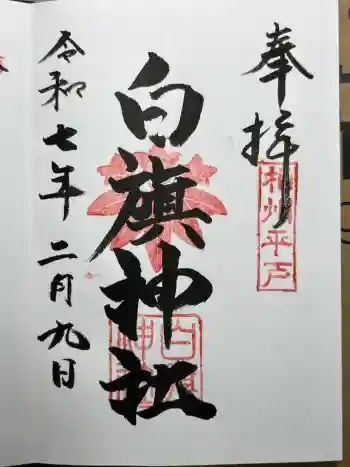 奉拝
相州平戸
白旗神社
白旗神社
令和七年二月九日